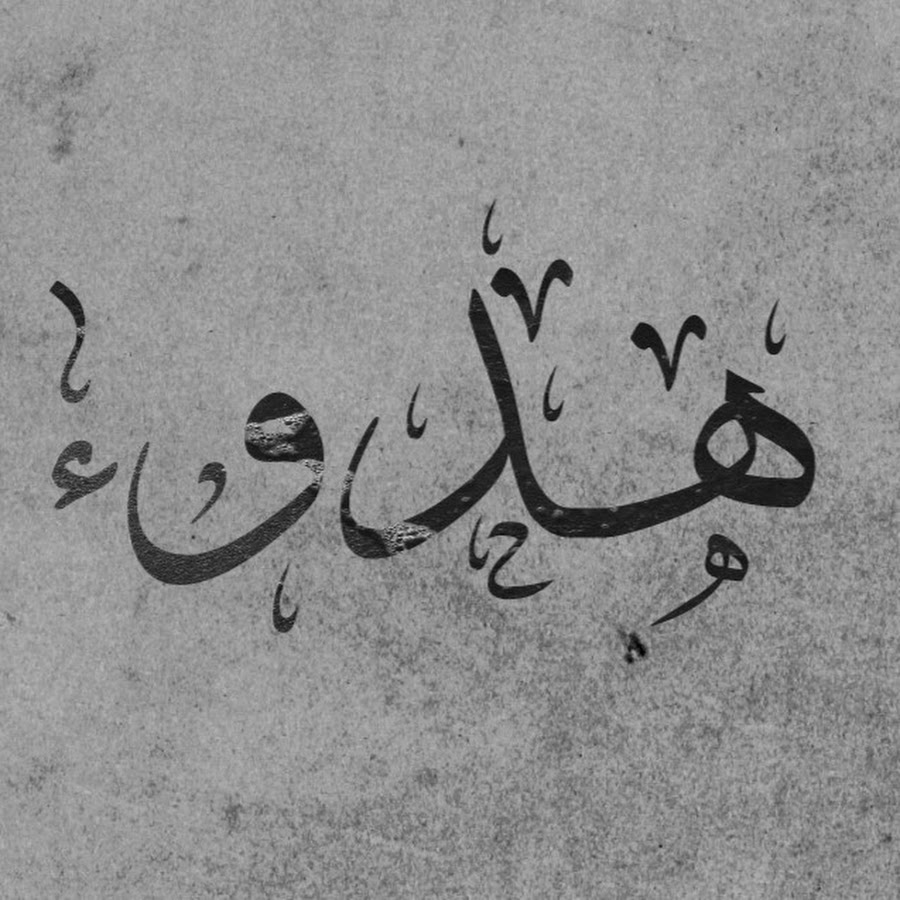 هدوء